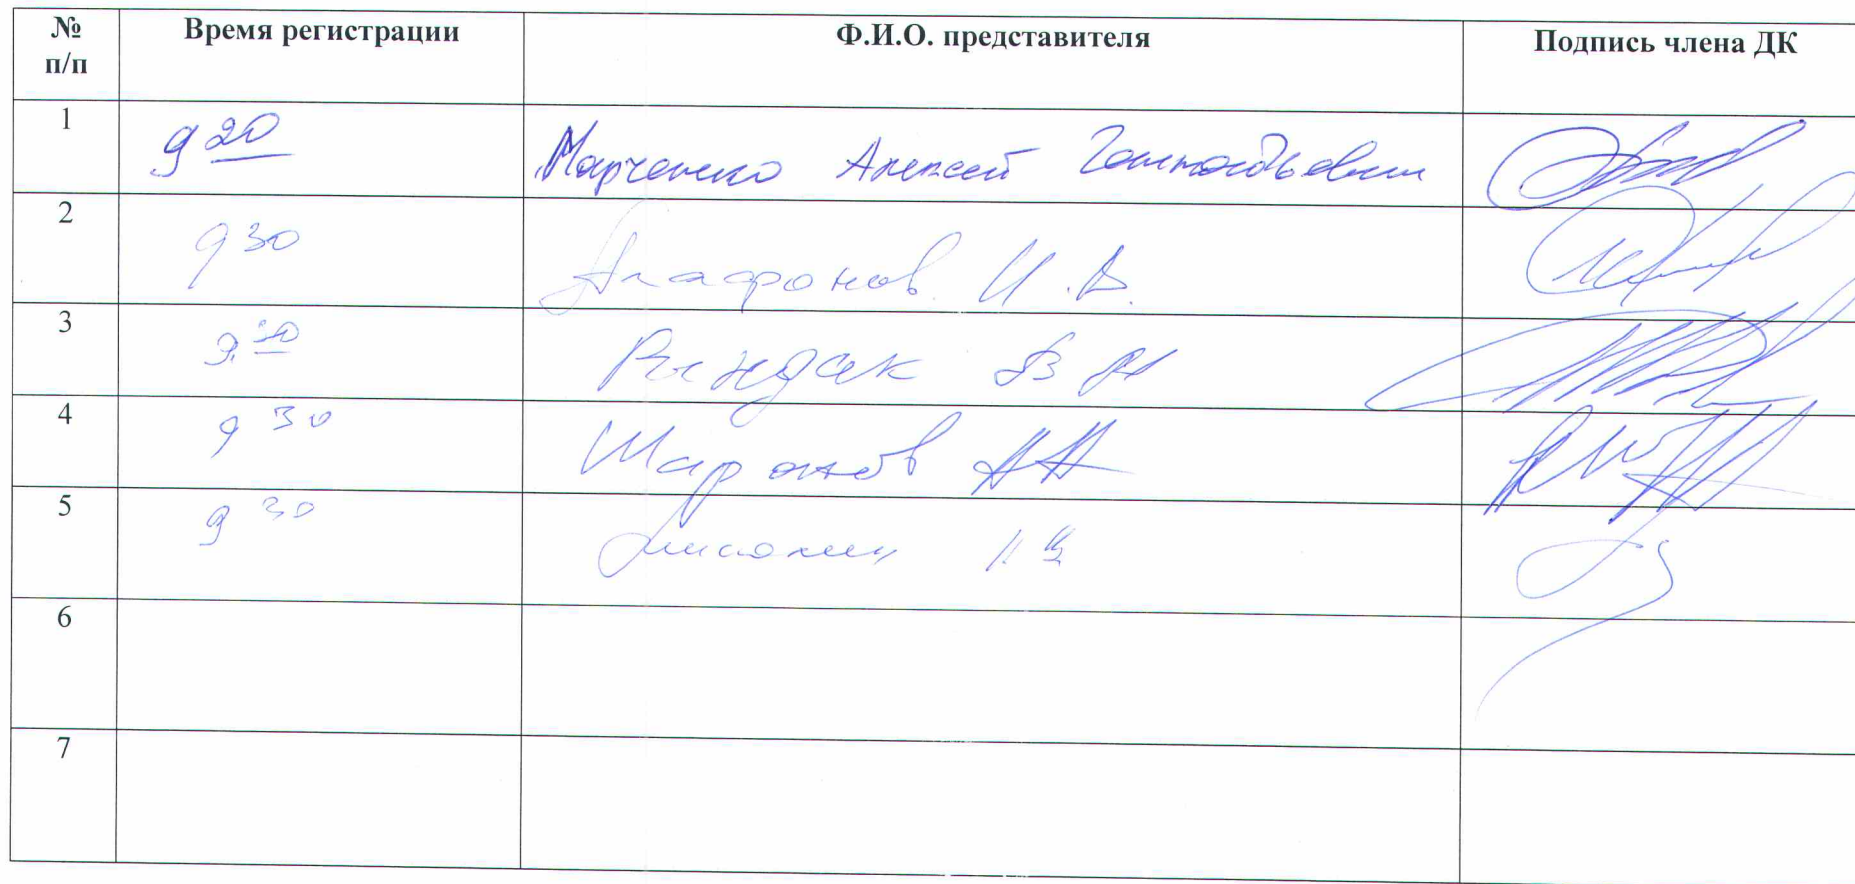 № п/п Время регистрации Ф.И.О. представителя Подпись члена ДК
1 9 20 Марченко Алексей Геннадьевич
2 9 30 Агафонов И.В.
3 9.30 Рындак В
4 9 30 Шаронов АА
5 9 30
6
7